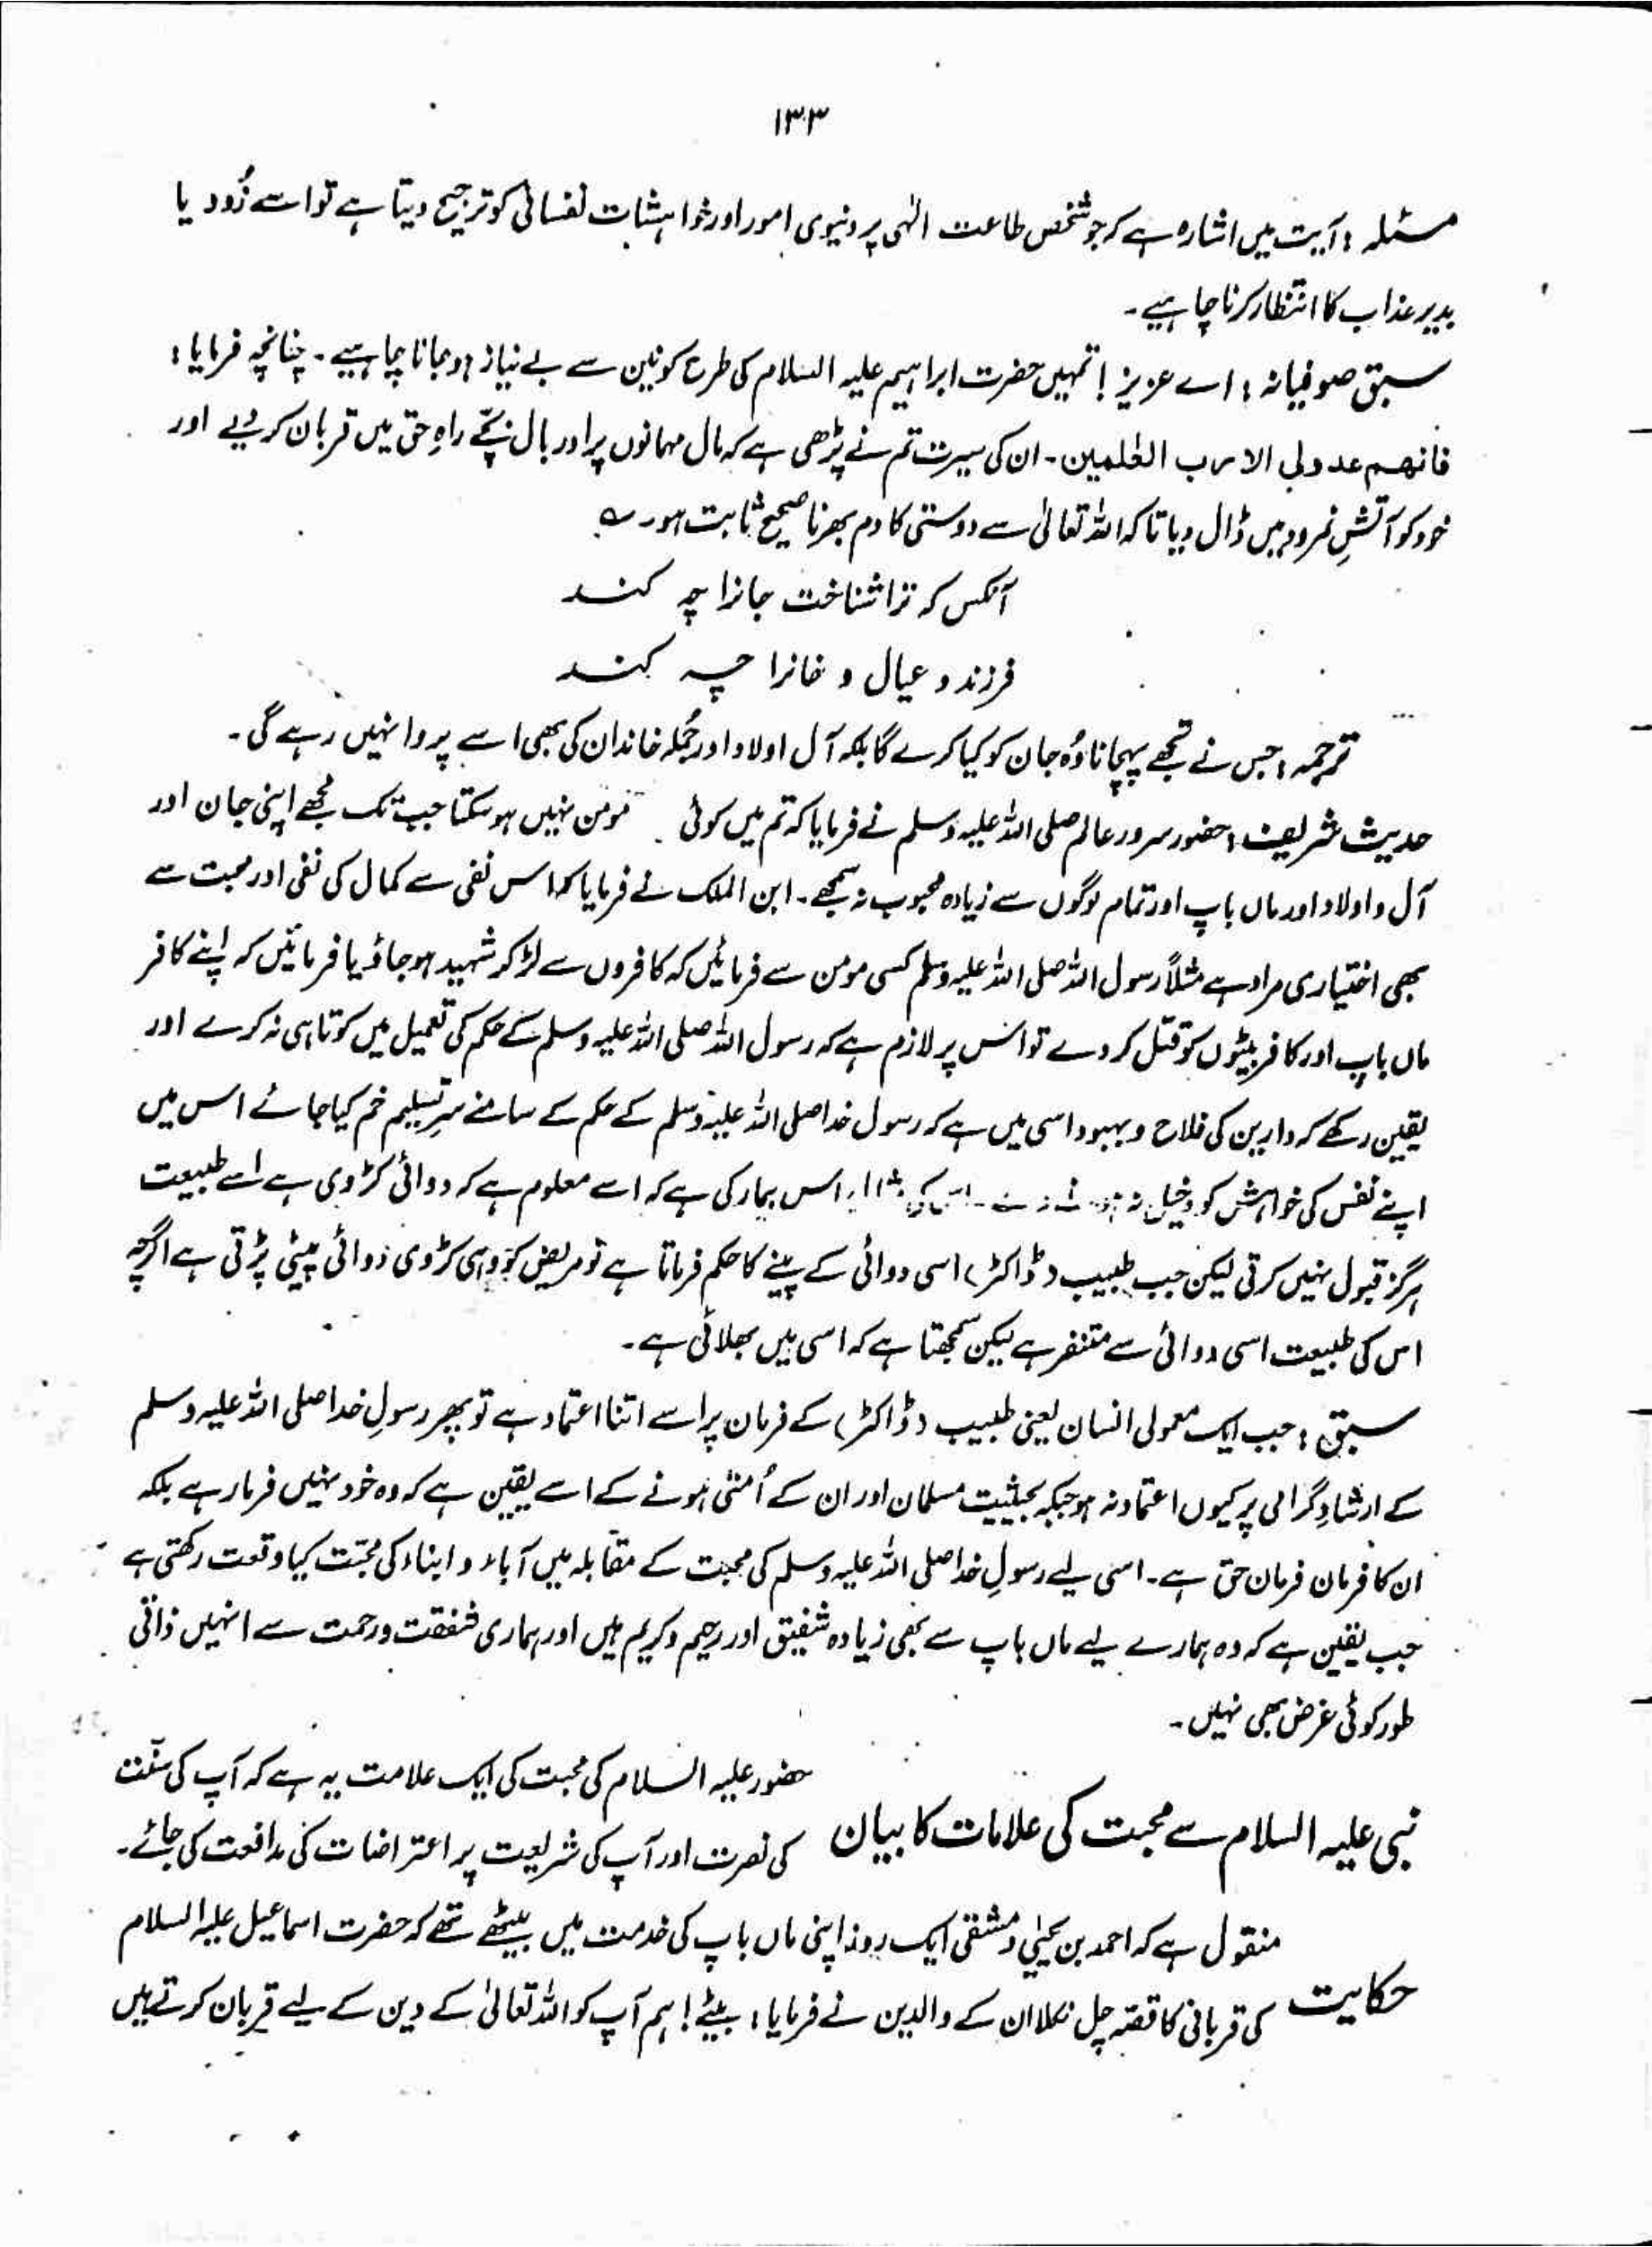 ۱۳۳
مسئلہ : آیت میں اشارہ ہے کہ جو شخص طاعت الٰہی پر دنیوی امور اور خواہشات نفسانی کو ترجیح دیتا ہے تو اسے زُود یا
بدیر عذاب کا انتظار کرنا چاہیے۔
سبق صوفیانہ : اے عزیز ! تمہیں حضرت ابراہیم علیہ السلام کی طرح کونین سے بے نیاز ہو جانا چاہیے۔ چنانچہ فرمایا :
فانھم عدو لی الا رب العٰلمین۔ ان کی سیرت تم نے پڑھی ہے کہ مال مہمانوں پر اور بال بچّے راہِ حق میں قربان کر دیے اور
خود کو آتشِ نمرود میں ڈال دیا تاکہ اللہ تعالٰی سے دوستی کا دم بھرنا صحیح ثابت ہو۔ ؎
آنکس کہ ترا شناخت جانرا چہ کند
فرزند و عیال و خانرا چہ کند
ترجمہ : جس نے تجھے پہچانا وُہ جان کو کیا کرے گا بلکہ آل اولاد اور جُملہ خاندان کی بھی اسے پروا نہیں رہے گی۔
حدیث شریف : حضور سرور عالم صلی اللہ علیہ وسلم نے فرمایا کہ تم میں کوئی مومن نہیں ہو سکتا جب تک مجھے اپنی جان اور
آل و اولاد اور ماں باپ اور تمام لوگوں سے زیادہ محبوب نہ سمجھے۔ ابن الملک نے فرمایا کہ اس نفی سے کمال کی نفی اور محبت سے
بھی اختیاری مراد ہے مثلاً رسول اللہ صلی اللہ علیہ وسلم کسی مومن سے فرمائیں کہ کافروں سے لڑ کر شہید ہو جاؤ یا فرمائیں کہ اپنے کافر
ماں باپ اور کافر بیٹوں کو قتل کر دے تو اس پر لازم ہے کہ رسول اللہ صلی اللہ علیہ وسلم کے حکم کی تعمیل میں کوتاہی نہ کرے اور
یقین رکھے کہ دارین کی فلاح و بہبود اسی میں ہے کہ رسول خدا صلی اللہ علیہ وسلم کے حکم کے سامنے سرِ تسلیم خم کیا جائے اس میں
اپنے نفس کی خواہش کو دخیل نہ اس بیمار کی ہے کہ اسے معلوم ہے کہ دوائی کڑوی ہے اسے طبیعت
ہرگز قبول نہیں کرتی لیکن جب طبیب (ڈاکٹر) اسی دوائی کے پینے کا حکم فرماتا ہے تو مریض کو وہی کڑوی دوائی پینی پڑتی ہے اگرچہ
اس کی طبیعت اسی دوائی سے متنفر ہے لیکن سمجھتا ہے کہ اسی میں بھلائی ہے۔
سبق : جب ایک معمولی انسان یعنی طبیب (ڈاکٹر) کے فرمان پر اسے اتنا اعتماد ہے تو پھر رسولِ خدا صلی اللہ علیہ وسلم
کے ارشادِ گرامی پر کیوں اعتماد نہ ہو جبکہ بحیثیت مسلمان اور ان کے اُمتی ہونے کے اسے یقین ہے کہ وہ خود نہیں فرما رہے بلکہ
ان کا فرمان فرمان حق ہے۔ اسی لیے رسولِ خدا صلی اللہ علیہ وسلم کی محبت کے مقابلہ میں آباء و ابناء کی محبّت کیا وقعت رکھتی ہے
جب یقین ہے کہ وہ ہمارے لیے ماں باپ سے بھی زیادہ شفیق اور رحیم و کریم ہیں اور ہماری شفقت و رحمت سے انہیں ذاتی
طور کوئی غرض بھی نہیں۔
نبی علیہ السلام سے محبت کی علامات کا بیان
حضور علیہ السلام کی محبت کی ایک علامت یہ ہے کہ آپ کی سنّت
کی نصرت اور آپ کی شریعت پر اعتراضات کی مدافعت کی جائے۔
حکایت
منقول ہے کہ احمد بن یحیٰی دمشقی ایک روز اپنی ماں باپ کی خدمت میں بیٹھے تھے کہ حضرت اسماعیل علیہ السلام
کی قربانی کا قصّہ چل نکلا ان کے والدین نے فرمایا : بیٹے ! ہم آپ کو اللہ تعالیٰ کے دین کے لیے قربان کرتے ہیں